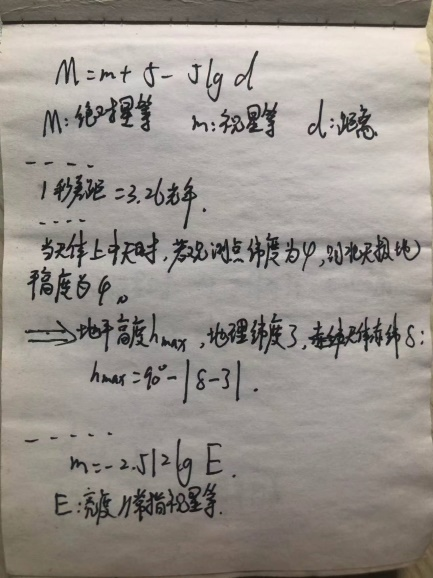 M=m+5-5lg d
M:绝对星等 m:视星等 d:距离
----
1秒差距=3.26光年.
----
当天体上中天时,若观测点纬度为φ,则北天极地
平高度为φ。
⟹地平高度hmax,地理纬度3,天体赤纬δ:
hmax=90°-|δ-3|.
-----
m=-2.512lg E.
E:亮度//常指视星等.